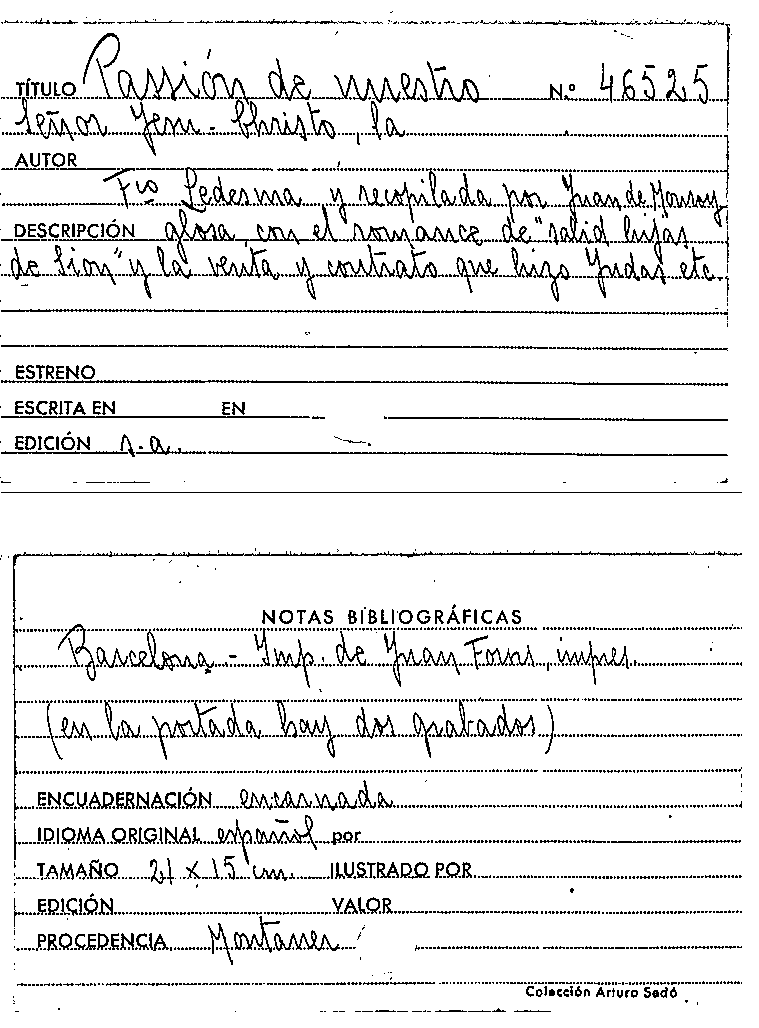 TÍTULO Passión de nuestro N.º 46525
Señor Jesu-Christo, la
AUTOR
Fco Ledesma y recopilada por Juan de Monroy
DESCRIPCIÓN glosa con el romance de "salid hijas
de Sion" y la venta y contrato que hizo Judas etc.
ESTRENO
ESCRITA EN EN
EDICIÓN s.a.
NOTAS BIBLIOGRÁFICAS
Barcelona - Imp. de Juan Forns, impres.
(en la portada hay dos grabados)
ENCUADERNACIÓN encarnada
IDIOMA ORIGINAL español por
TAMAÑO 21 x 15 cm. ILUSTRADO POR
EDICIÓN VALOR
PROCEDENCIA Montaner
Colección Arturo Sedó